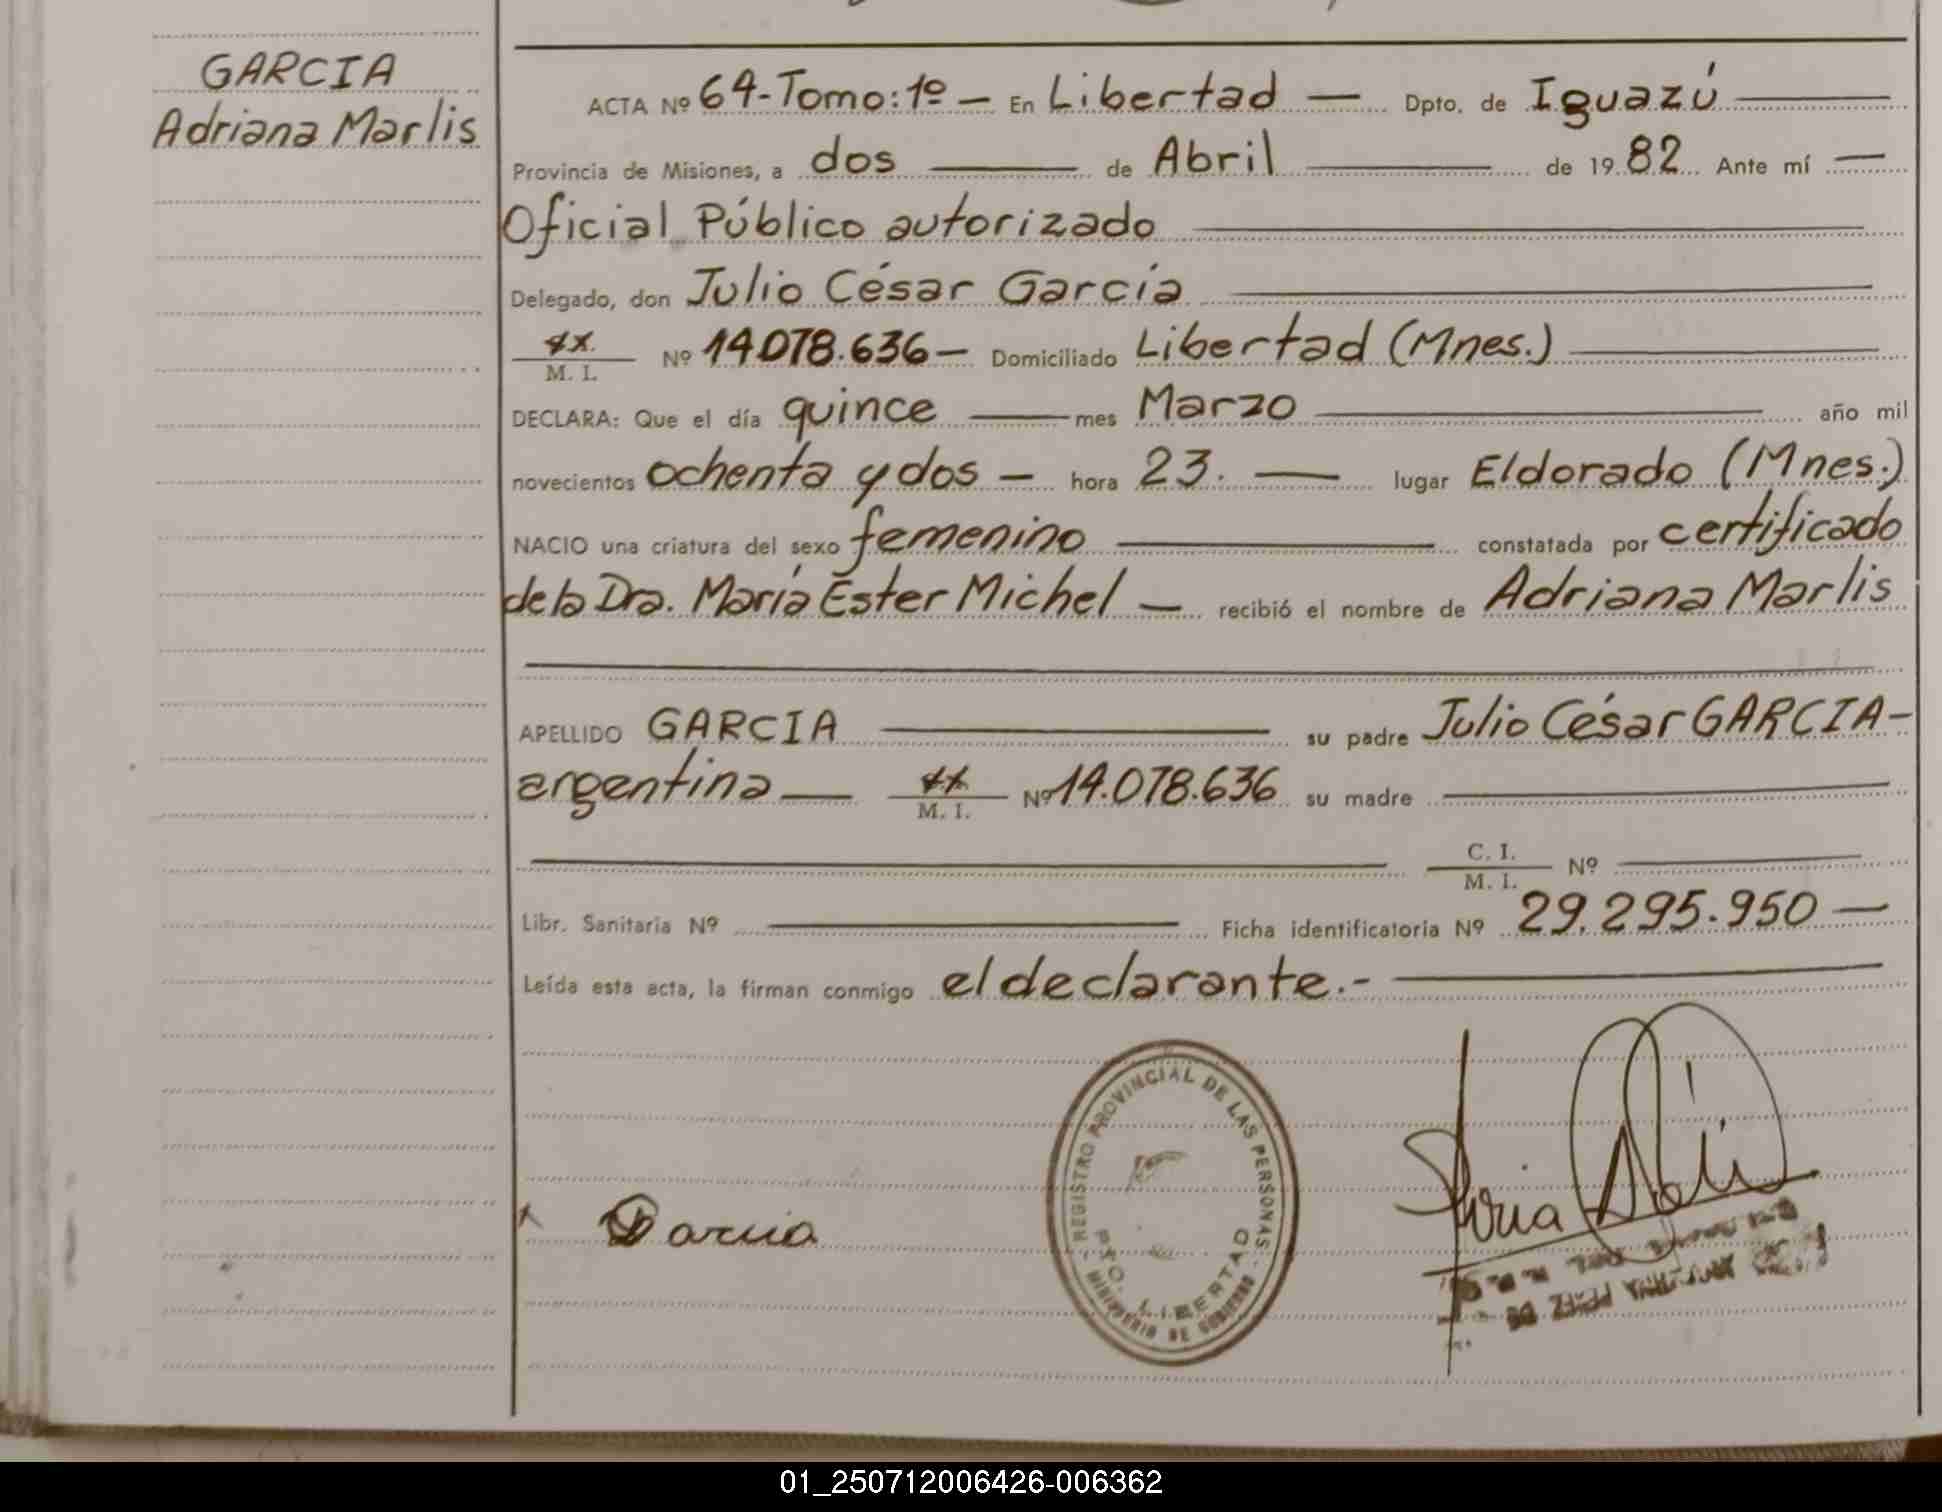 GARCIA
Adriana Marlis
ACTA Nº 64-Tomo:1º — En Libertad — Dpto. de Iguazú
Provincia de Misiones, a dos — de Abril — de 1982 Ante mí —
Oficial Público autorizado
Delegado, don Julio César García
M. I. Nº 14.078.636 — Domiciliado Libertad (Mnes.)
DECLARA: Que el día quince — mes Marzo — año mil
novecientos ochenta y dos — hora 23. — lugar Eldorado (Mnes.)
NACIO una criatura del sexo femenino — constatada por certificado
de la Dra. María Ester Michel — recibió el nombre de Adriana Marlis
APELLIDO GARCIA — su padre Julio César GARCIA -
argentina — M. I. Nº 14.078.636 su madre —
C. I.
M. I. Nº —
Libr. Sanitaria Nº — Ficha identificatoria Nº 29.295.950 —
Leída esta acta, la firman conmigo el declarante.-
REGISTRO PROVINCIAL DE LAS PERSONAS
PTO. LIBERTAD
MINISTERIO DE GOBIERNO
Garcia
01_250712006426-006362